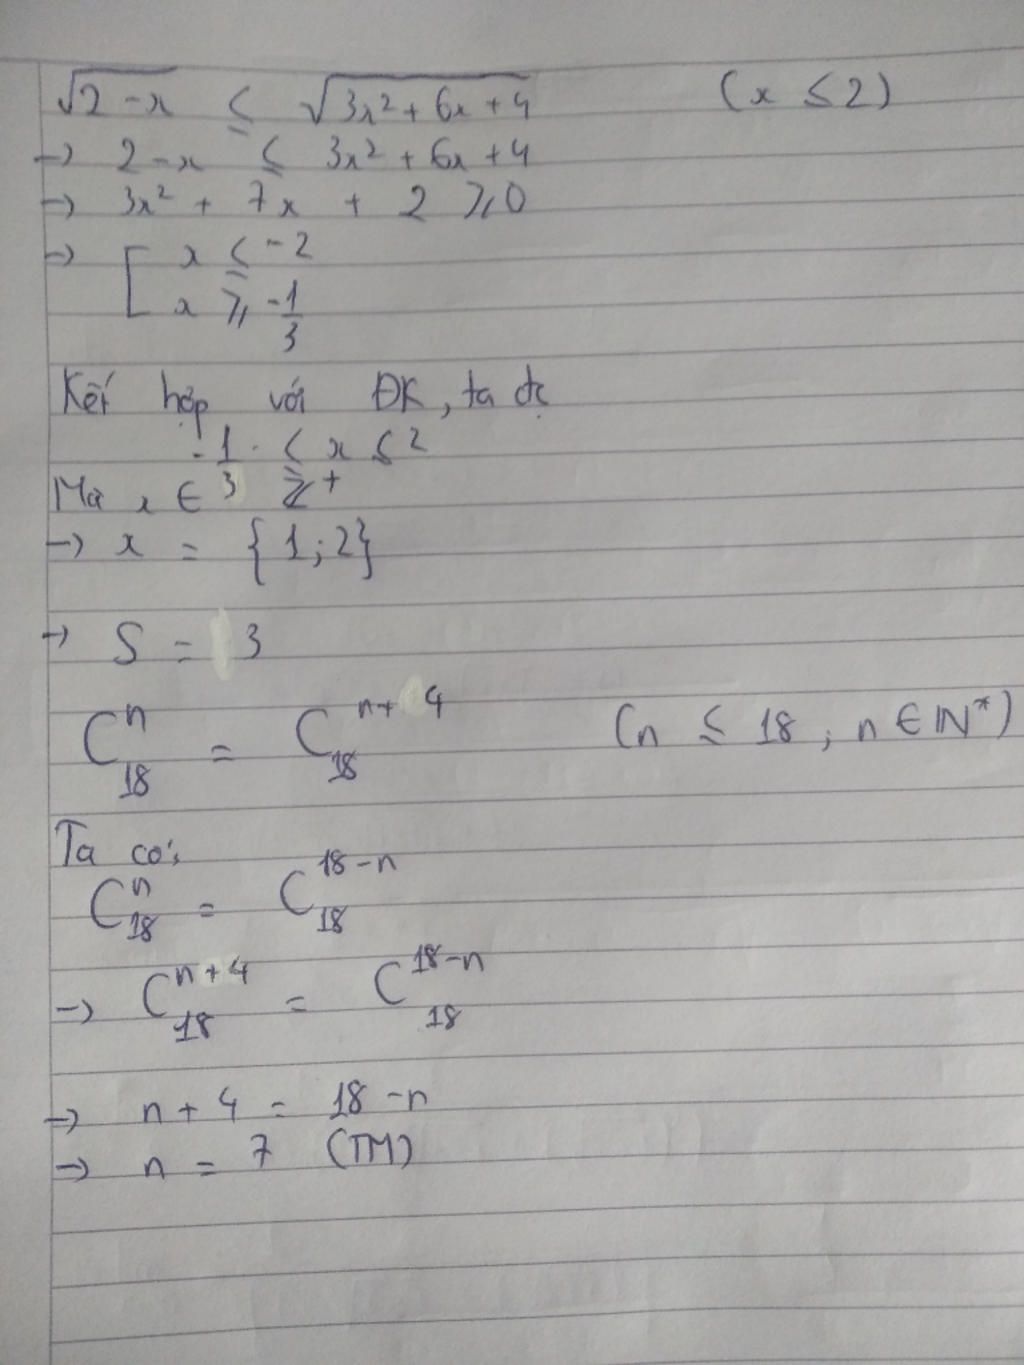 √2-x ≤ √3x²+6x+4 (x ≤ 2)
→ 2-x ≤ 3x²+6x+4
→ 3x² + 7x + 2 ≥ 0
→ [ x ≤ -2
x ≥ -1/3
Kết hợp với ĐK, ta đc
-1/3 ≤ x ≤ 2
Mà x ∈ ℤ⁺
→ x = {1;2}
→ S = 3
C₁₈ⁿ = C₁₈ⁿ⁺⁴ (n ≤ 18, n ∈ ℕ*)
Ta có:
C₁₈ⁿ = C₁₈¹⁸⁻ⁿ
→ C₁₈ⁿ⁺⁴ = C₁₈¹⁸⁻ⁿ
→ n + 4 = 18 - n
→ n = 7 (TM)